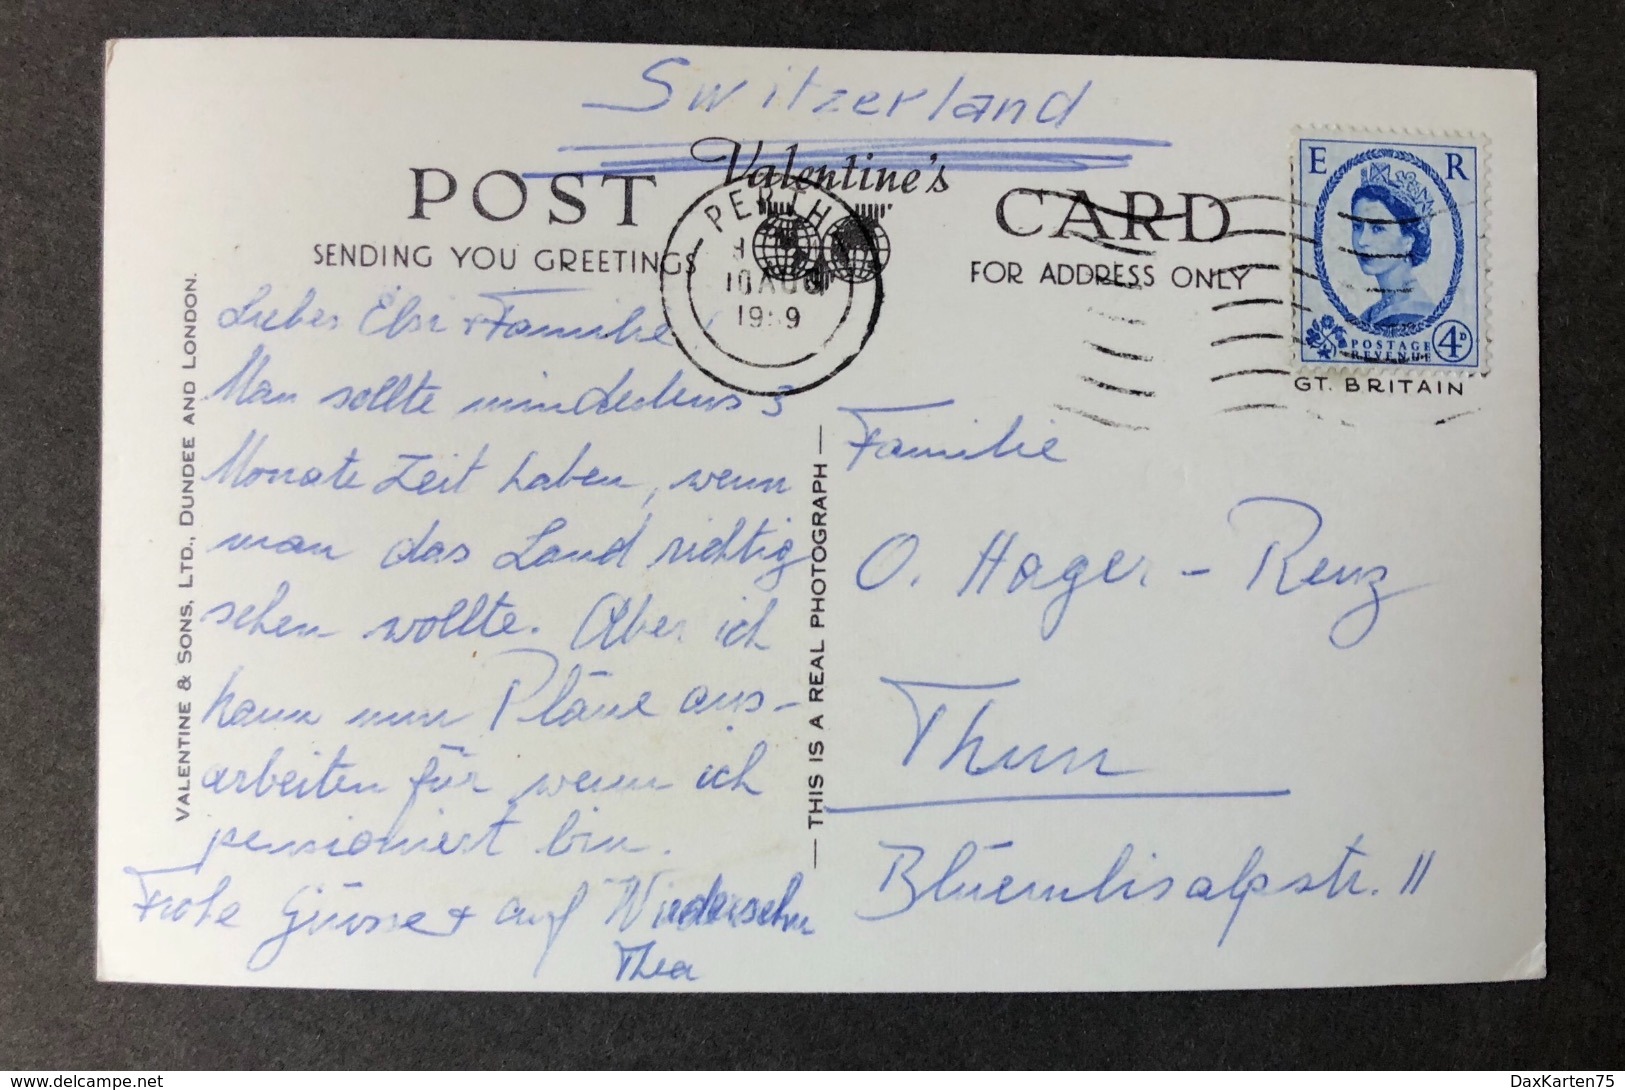 Switzerland
Valentine's
POST CARD
SENDING YOU GREETINGS
FOR ADDRESS ONLY
PERTH
10 AUG
E R
POSTAGE
REVENUE
4D
GT. BRITAIN
VALENTINE & SONS, LTD., DUNDEE AND LONDON.
Liebes Elsi + Familie,
Man sollte mindestens 3
Monate Zeit haben, wenn
man das Land richtig
sehen wollte. Aber ich
kann nun Pläne aus-
arbeiten für wenn ich
pensioniert bin.
Frohe Grüsse + auf Wiedersehn
Thea
— THIS IS A REAL PHOTOGRAPH —
Familie
O. Hager - Renz
Thun
Blüemlisalpstr. 11
delcampe.net
DaxKarten75